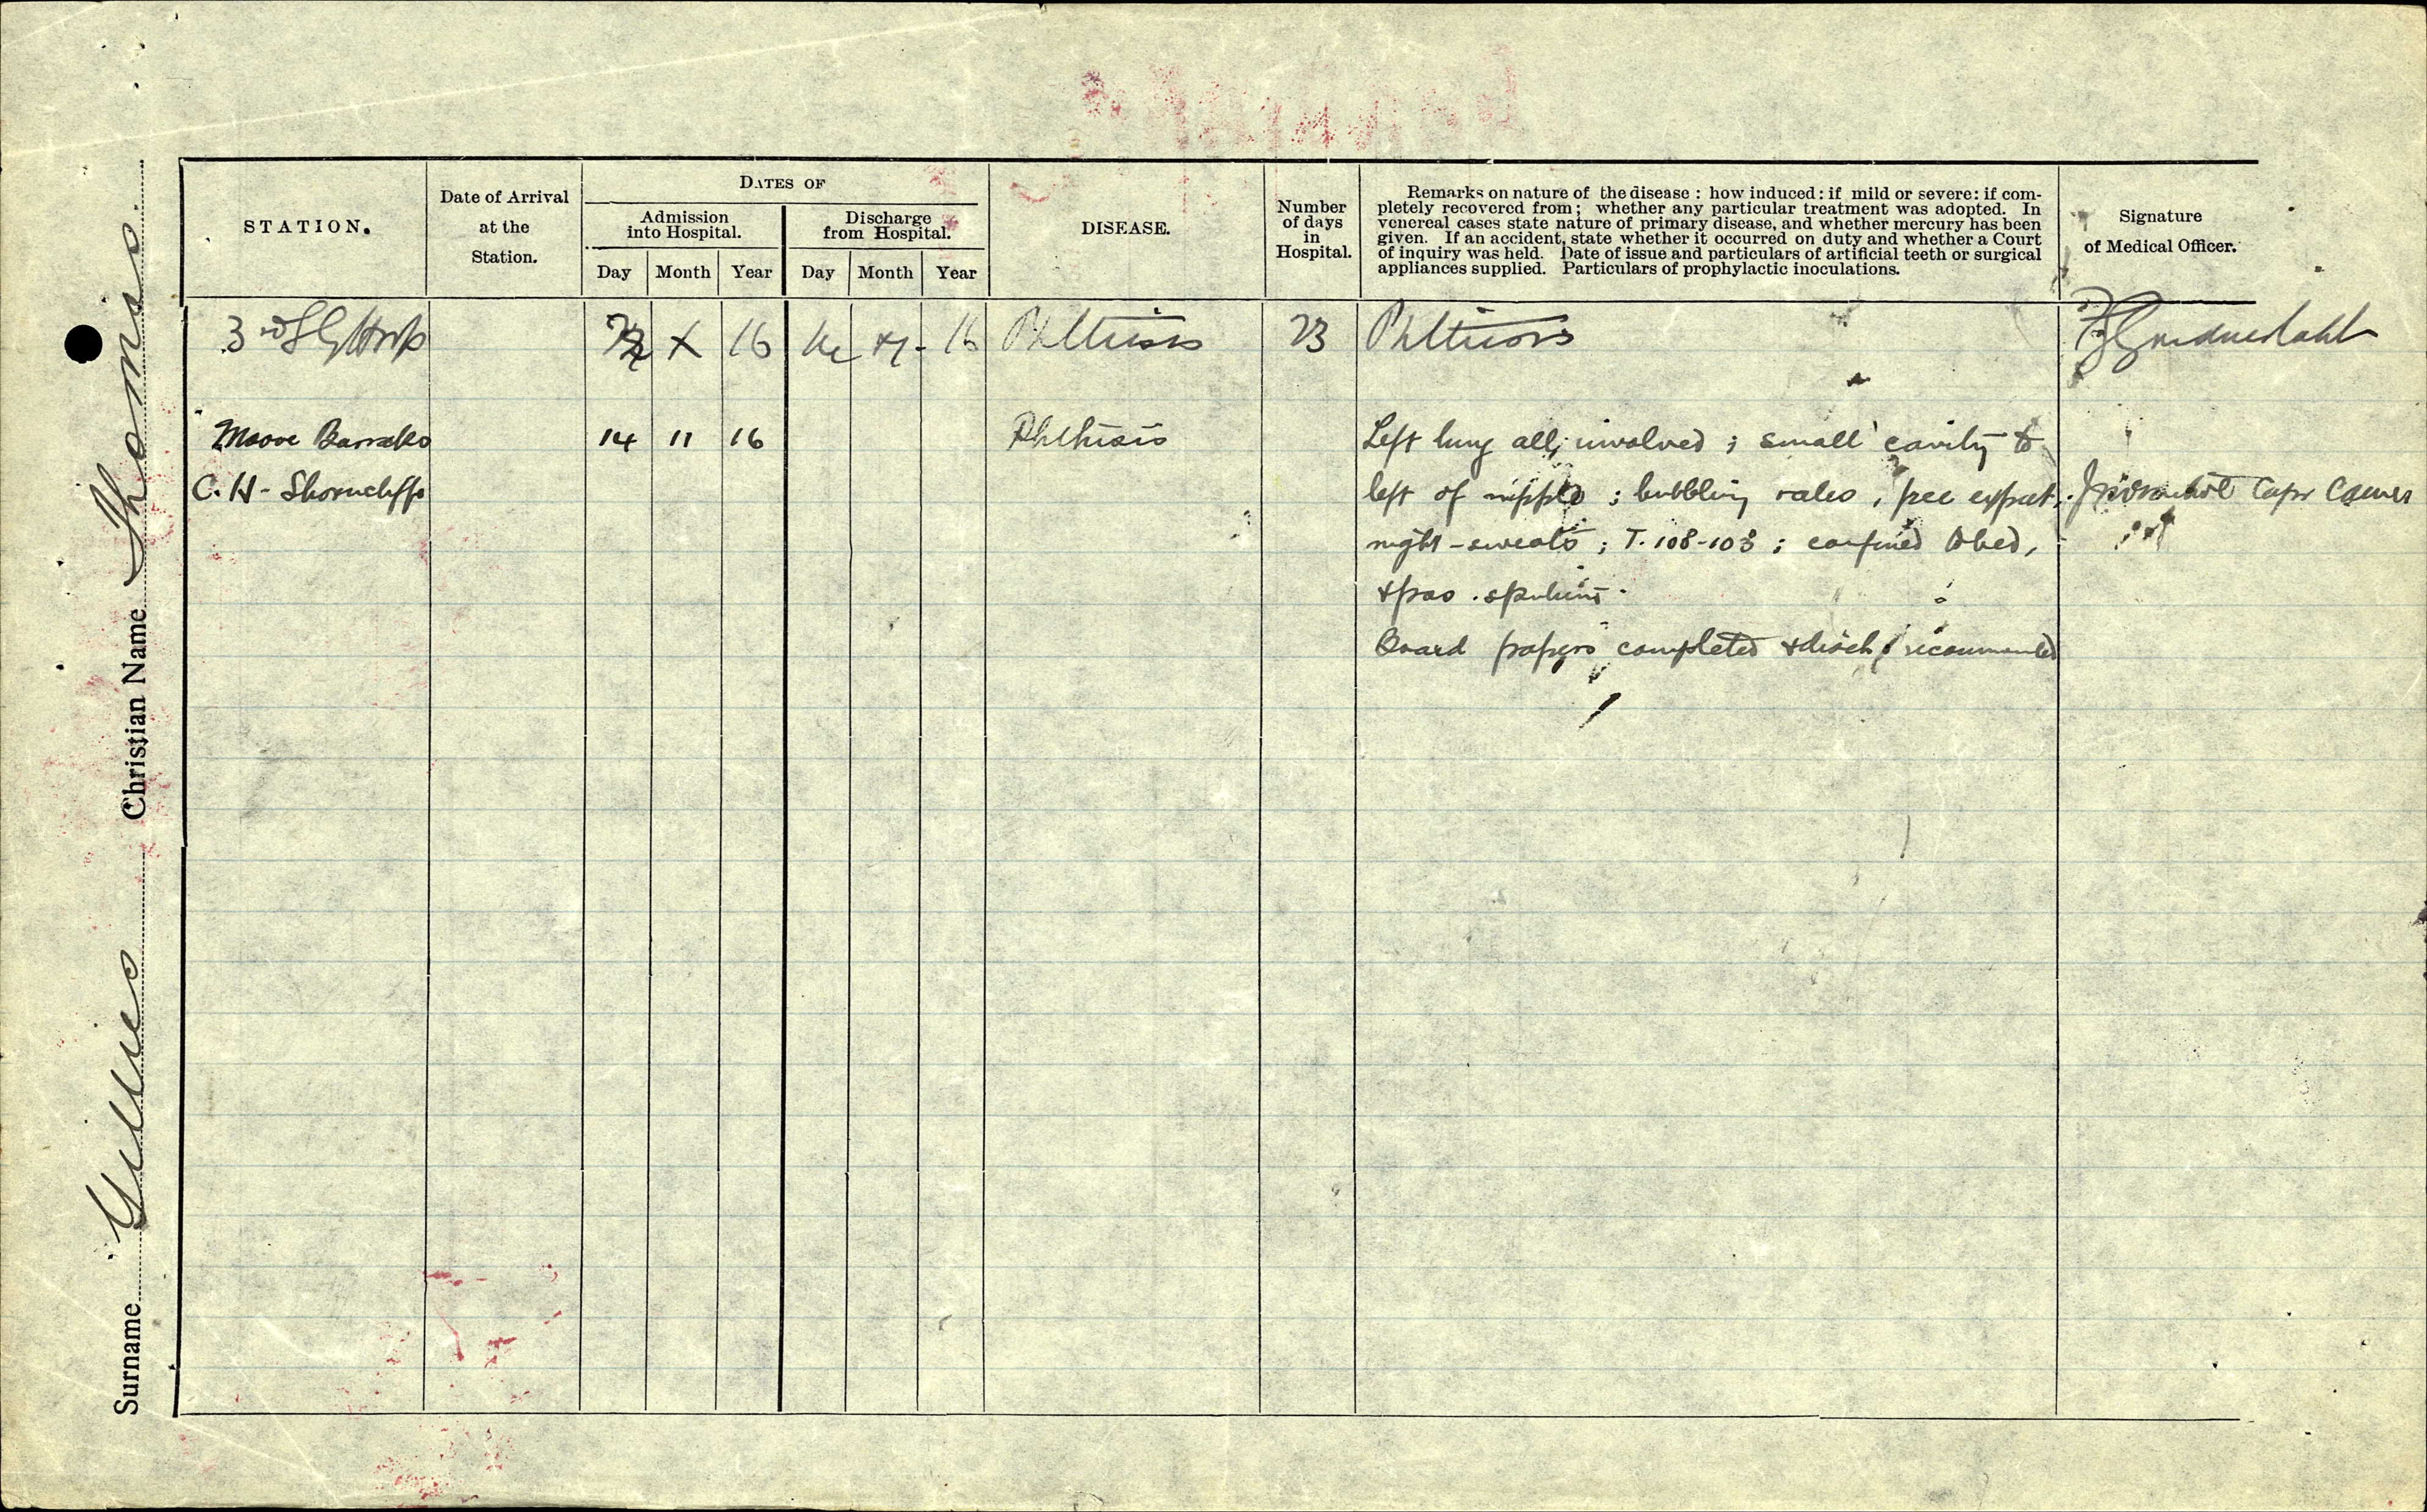 Surname Gillies Christian Name Thomas.
STATION.
Date of Arrival
at the
Station.
DATES OF
Admission
into Hospital.
Discharge
from Hospital.
Day Month Year Day Month Year
DISEASE.
Number
of days
in
Hospital.
Remarks on nature of the disease : how induced : if mild or severe : if com-
pletely recovered from ; whether any particular treatment was adopted. In
venereal cases state nature of primary disease, and whether mercury has been
given. If an accident, state whether it occurred on duty and whether a Court
of inquiry was held. Date of issue and particulars of artificial teeth or surgical
appliances supplied. Particulars of prophylactic inoculations.
Signature
of Medical Officer.
3rd X 16 16 Phthisis 23 Phthisis
Moore Barracks 14 11 16 Phthisis Left lung all involved ; small cavity to
C. H - Shorncliffe left of nipple ; bubbling rales , free expect. Capt CAMC
night-sweats ; T. 108-103 ; confined to bed,
+ pos . sputum .
Board papers completed & disch. recommended